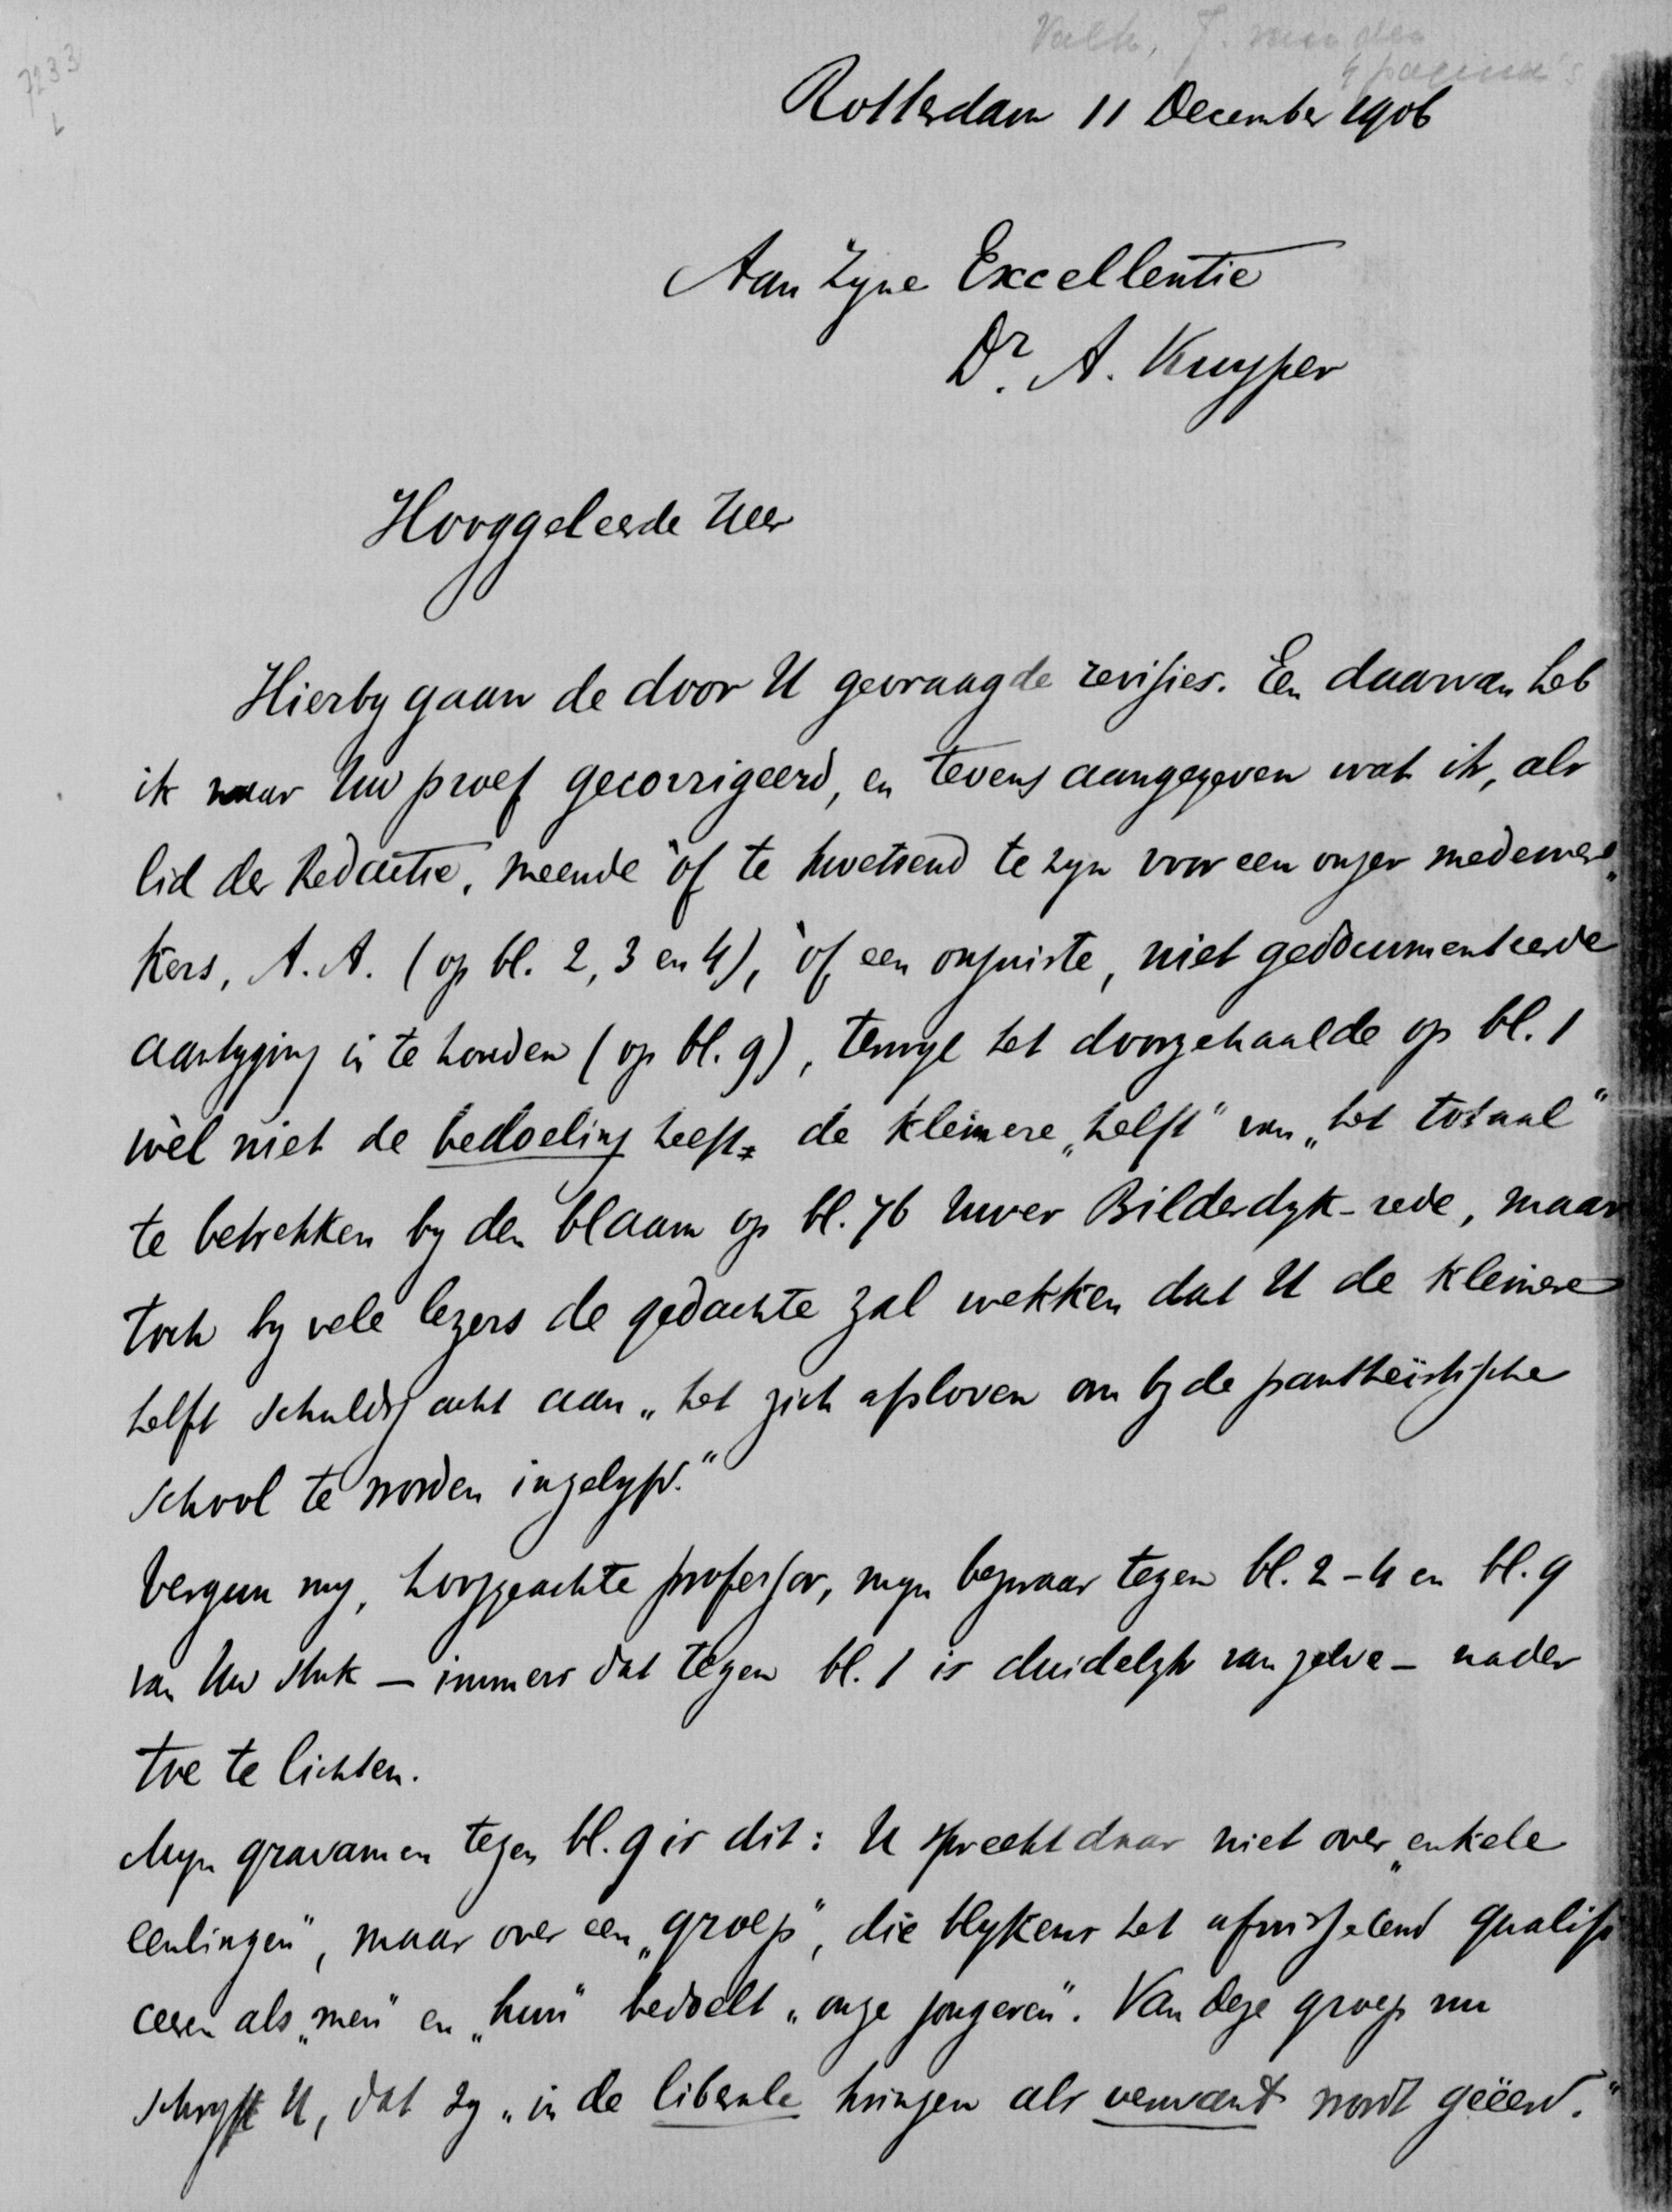 7233
Valk, J. van der
4 pagina's
Rotterdam 11 December 1906
Aan Zyne Excellentie
Dr. A. Kuyper
Hooggeleerde Heer
Hierby gaan de door U gevraagde revisies. Een daarvan heb
ik naar Uw proef gecorrigeerd, en tevens aangegeven wat ik, als
lid der Redactie, meende òf te kwetsend te zyn voor een onzer medewer„
kers, A. A. (op bl. 2, 3 en 4), òf een onjuiste, niet gedocumenteerde
aantyging in te houden (op bl. 9), terwyl het doorgehaalde op bl. 1
wèl niet de bedoeling heeft de kleinere „helft" van „het totaal"
te betrekken by den blaam op bl. 76 Uwer Bilderdyk-rede, maar
toch by vele lezers de gedachte zal wekken dat U de kleinere
helft schuldig acht aan „het zich afsloven om by de pantheïstische
school te worden ingelyfd."
Vergun my, hooggeachte professor, myn bezwaar tegen bl. 2-4 en bl. 9
van Uw stuk — immers dat tegen bl. 1 is duidelyk van zelve — nader
toe te lichten.
Myn gravamen tegen bl. 9 is dit: U spreekt daar niet over „enkele
eenlingen", maar over een „groep", die blykens het afwisselend qualifi
ceeren als „men" en „hun" bedoelt „onze jongeren". Van deze groep nu
schryft U, dat zy „in de liberale kringen als verwant wordt geëerd."